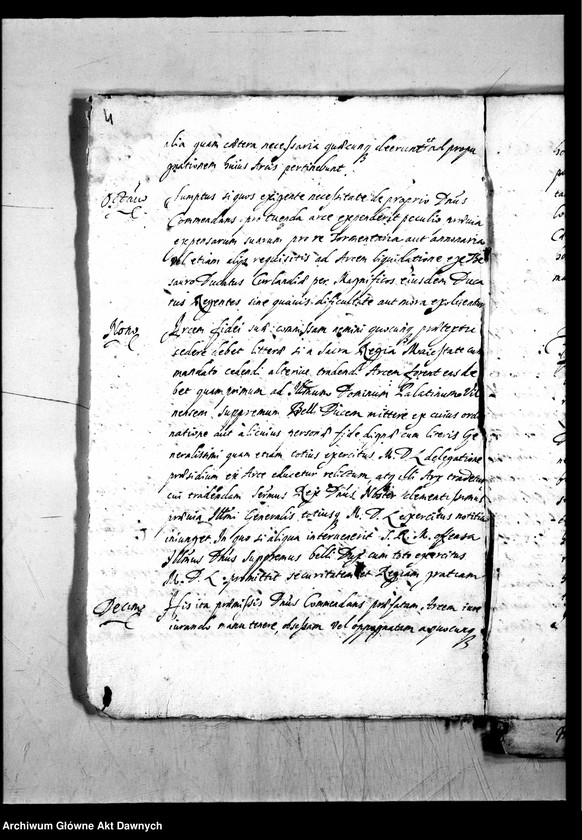 4
alia quam cætera necessaria quæcunq deerunt ad propu
gnationem huius Arcis pertinebunt.
Octavo Sumptus si quos exigente necessitate de proprio Dnus
Commendans pro tuenda arce expenderit peculio prævia
expensarum suarum pro re Tormentaria aut annonaria
vel etiam alijs requisitis ad Arcem liquidatione ex The
sauro Ducatus Curlandiæ per Magnificos eiusdem Duca
tus Regentes sine quavis difficultate aut mora exolventur
Nono Arcem fidei suæ comissam nemini quocunq prætextu
cedere debet litteræ si a Sacra Regia Maiestate cum
mandato cedendi alterive tradendi Arcem forent eas de
bet quamprimum ad Illmum Dominum Palatinum Vil
nensem Supremum Belli Ducem mittere ex cuius ordi
natione aut alicuius personæ fide dignæ cum literis Ge
neralissimi quam etiam totius exercitus M. D. L delegatione
præsidium ex Arce educetur relictum, atq illi Arx tradetur
cui tradendam Sermus Rex Dnus Noster clementissimus
prævia Illmi Generalis totiusq M. D. L exercitus notitia
iniunget. In quo si aliqua intervenerit S. R. M. offensa
Illmus Dnus Supremus belli Dux cum toto exercitus
M. D. L. promittit securitatem et Regiam gratiam
Decimo His ita præmissis Dnus Commendans præfatam Arcem iure
iurando manutenere, obsessam vel oppugnatam a quocunq
Archiwum Główne Akt Dawnych